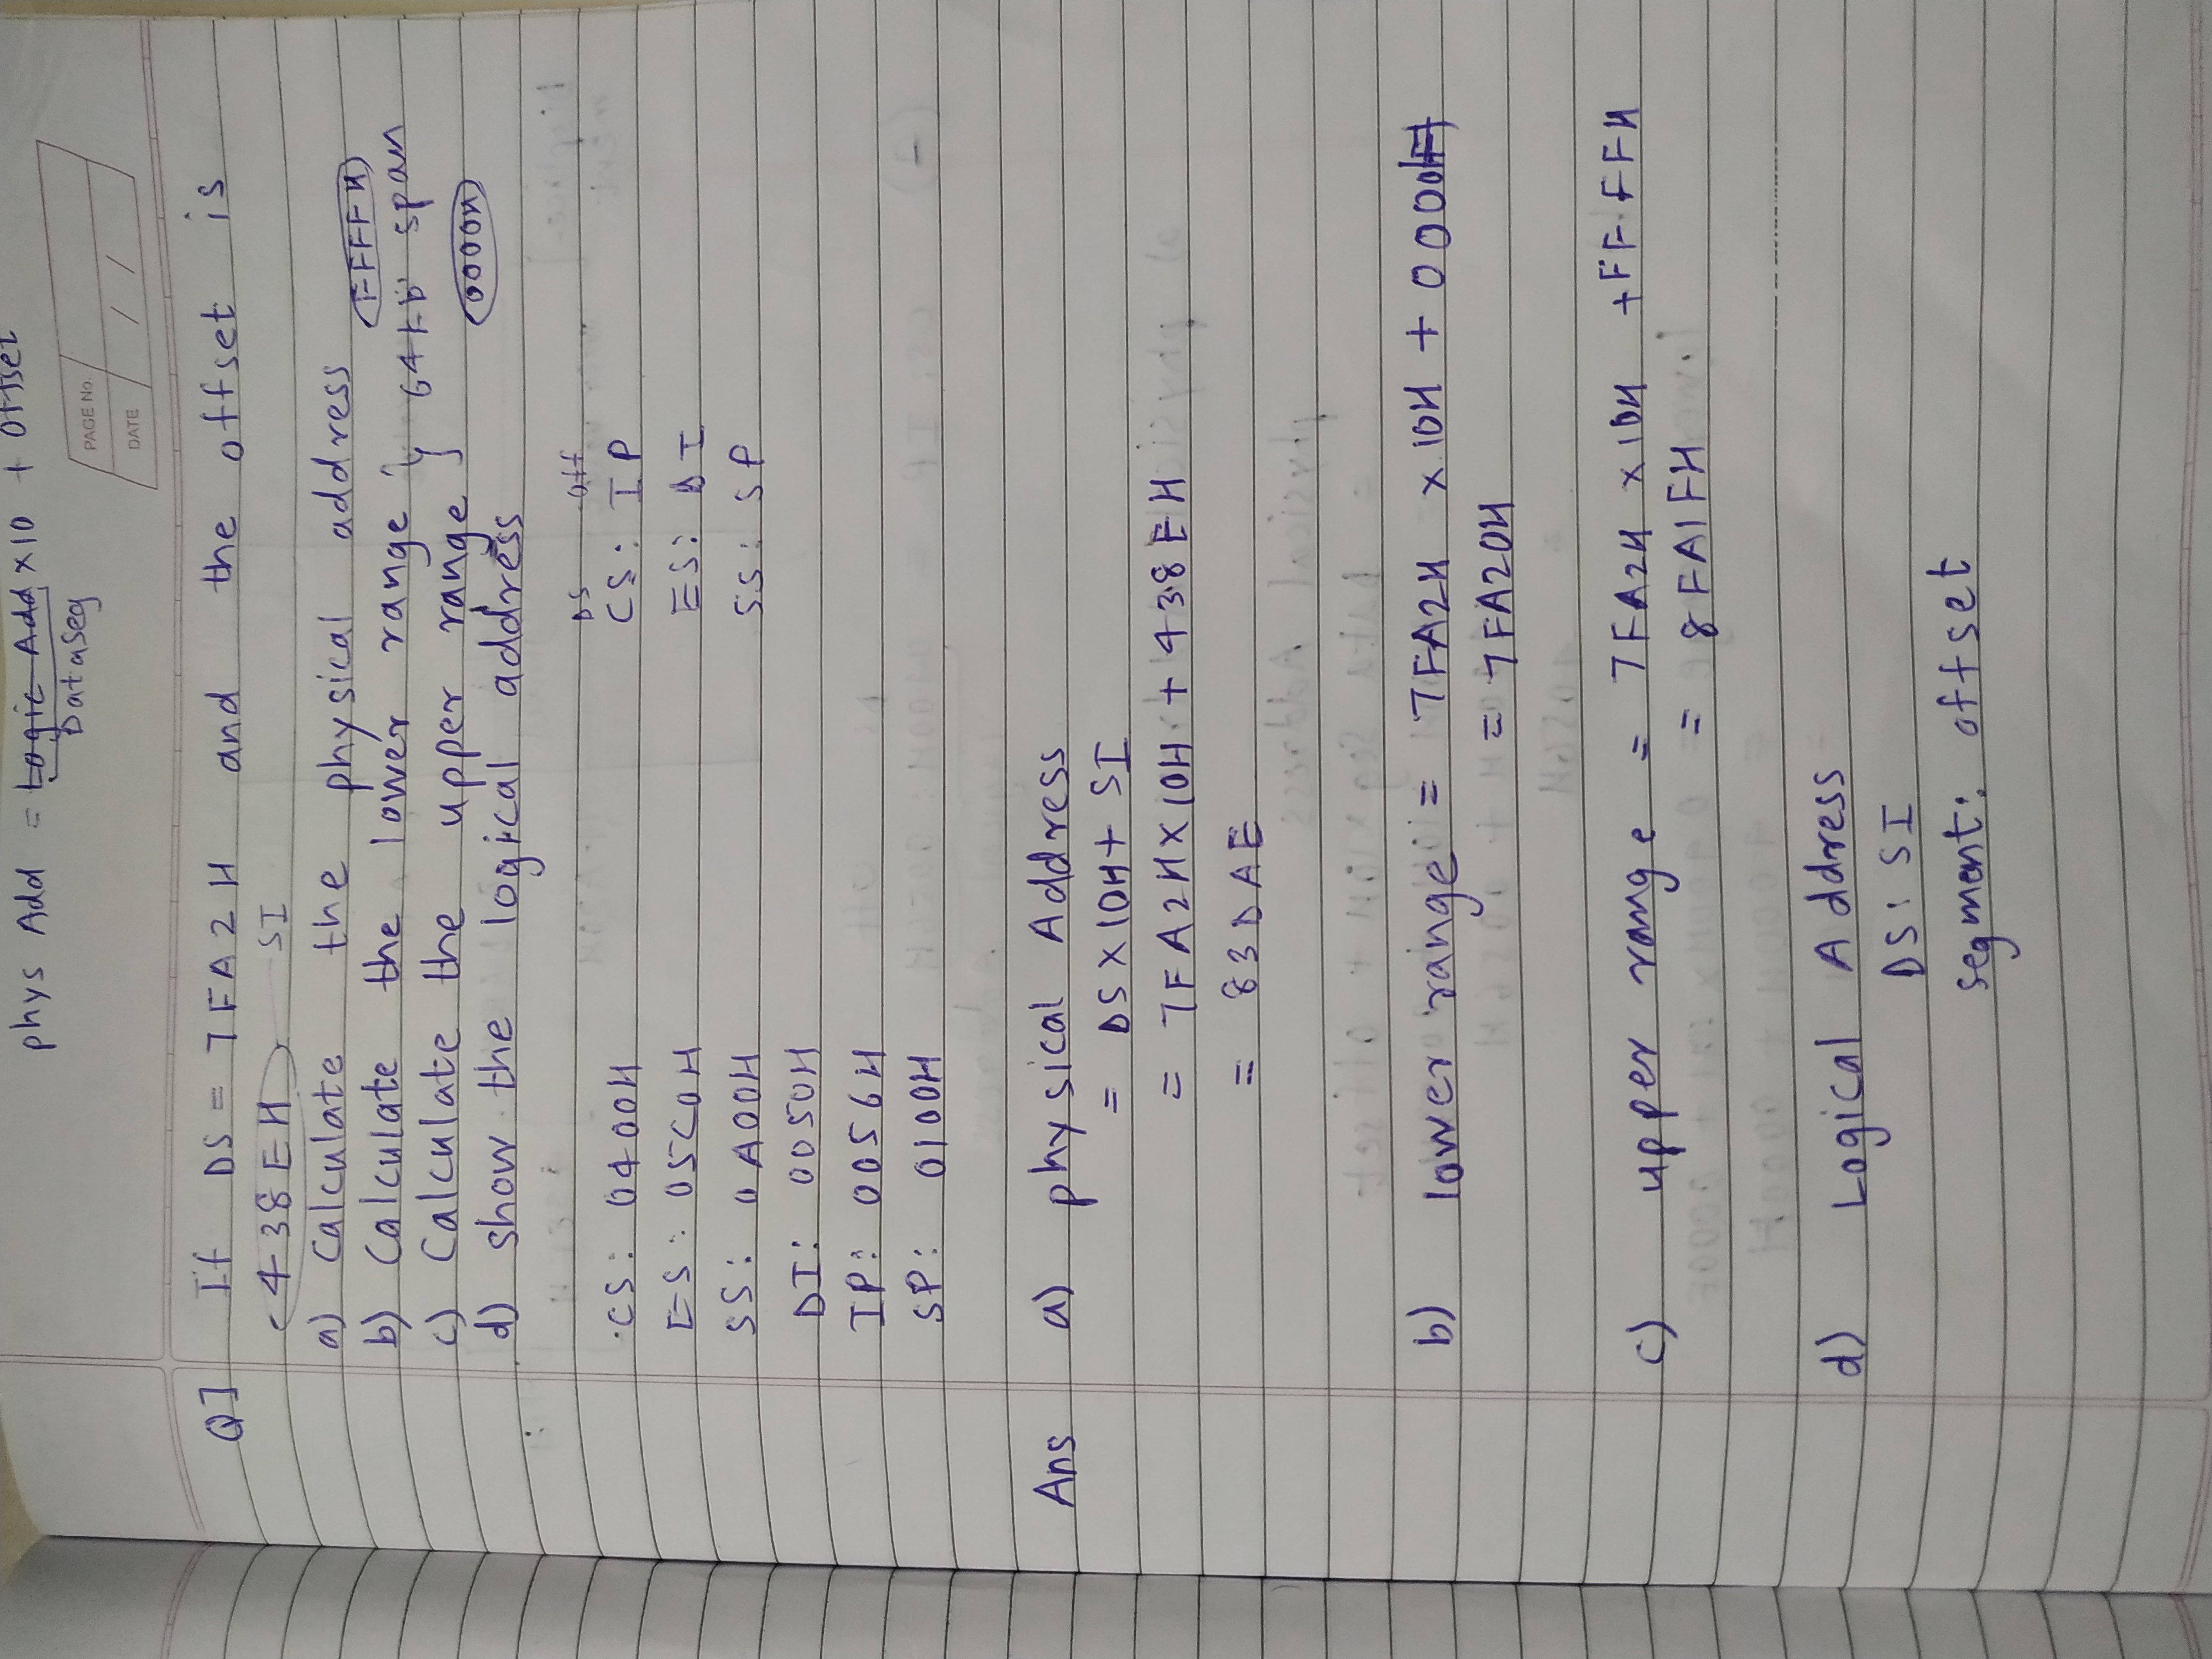 phys Add = Logic Add x10 + Offset
DataSeg
PAGE No.
DATE / /
Q] If DS = 7FA2H and the offset is
438EH SI
a) Calculate the physical address
FFFFH
b) Calculate the lower range } 64kb span
c) Calculate the upper range
0000H
d) show the logical address
DS off
CS: 0400H CS: IP
ES: 05C0H ES: DI
SS: 0A00H SS: SP
DI: 0050H
IP: 0056H
SP: 0100H
Ans a) physical Address
= DS X 10H + SI
= 7FA2H X 10H + 438EH
= 83DAE
b) lower range = 7FA2H x 10H + 0000H
= 7FA20H
c) upper range = 7FA2H x 10H + FFFFH
= 8FA1FH
d) Logical Address
DS: SI
segment: offset